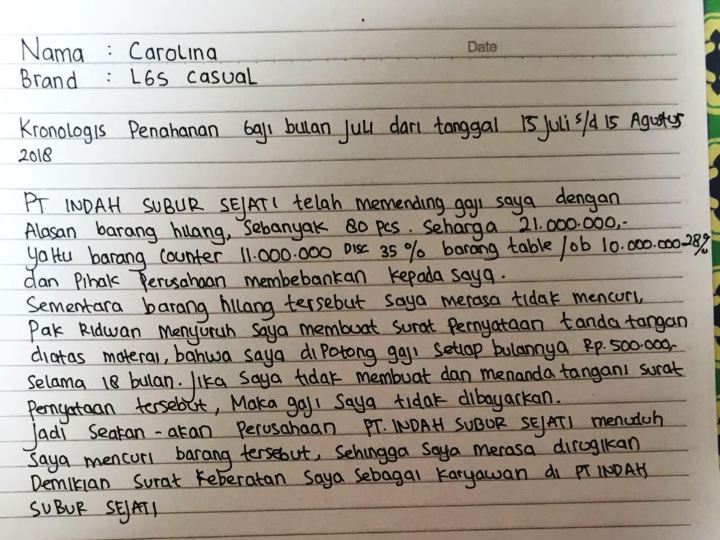 Date
Nama : Carolina
Brand : LGS CASUAL
Kronologis Penahanan Gaji bulan Juli dari tanggal 15 Juli s/d 15 Agustus
2018
PT INDAH SUBUR SEJATI telah memending gaji saya dengan
Alasan barang hilang, Sebanyak 80 pcs. Seharga 21.000.000,-
Yaitu barang Counter 11.000.000 Disc 35 % barang table / ob 10.000.000 28%
dan Pihak Perusahaan membebankan kepada saya.
Sementara barang hilang tersebut saya merasa tidak mencuri,
Pak Ridwan Menyuruh saya membuat surat Pernyataan tanda tangan
diatas materai, bahwa saya diPotong gaji setiap bulannya Rp. 500.000,-
Selama 18 bulan. Jika saya tidak membuat dan menanda tangani surat
Pernyataan tersebut, Maka gaji saya tidak dibayarkan.
Jadi Seakan - akan Perusahaan PT. INDAH SUBUR SEJATI menuduh
Saya mencuri barang tersebut, Sehingga Saya merasa dirugikan
Demikian Surat Keberatan Saya Sebagai Karyawan di PT INDAH
SUBUR SEJATI